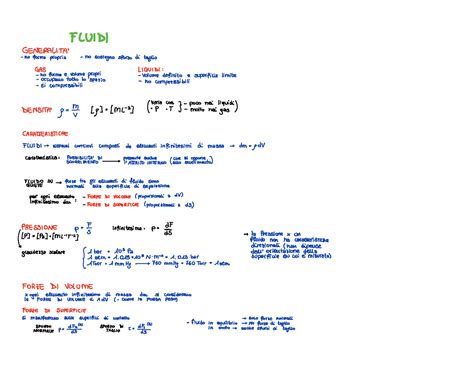 FLUIDI
GENERALITA'
- no forma propria - no sostegno sforzo di taglio
GAS LIQUIDI:
- no forma e volume propri - Volume definito e superficie limite
- occupano tutto lo spazio - no comprimibili
- si comprimibili
DENSITA' ρ = m/V [ρ] = [ML⁻³] (varia con - P - T) - poco nei liquidi - molto nei gas
CARATTERISTICHE
FLUIDI → sistemi continui composti da elementi infinitesimi di massa → dm = ρ dV
caratteristica: POSSIBILITA' DI SCORRIMENTO → presente anche l'ATTRITO INTERNO (che si oppone
FLUIDO IN QUIETE → forze tra gli elementi di fluido sono normali alla superficie di separazione
per ogni elemento infinitesimo dm: - FORZE DI VOLUME (proporzionali a dV)
- FORZE DI SUPERFICIE (proporzionali a dS)
PRESSIONE p = F/S Infinitesima: p = dF/dS
[P] = [Pa] = [ML⁻¹T⁻²]
grandezza scalare
1 bar = 10⁵ Pa
1 atm = 1.013·10⁵ N·m⁻² = 1.013 bar
1 Torr = 1 mmHg → 760 mmHg = 760 Torr = 1 atm
→ la Pressione x un fluido non ha caratteristiche direzionali (non dipende dall'orientazione della superficie su cui è misurata)
FORZE DI VOLUME
x ogni elemento infinitesimo di massa dm si considerano
le FORZE DI VOLUME a dV (come la forza peso)
FORZE DI SUPERFICIE
Si manifestano sulle superfici di contatto
SFORZO NORMALE SFORZO DI TAGLIO
- fluido in equilibrio → solo forze normali
→ no forze di taglio